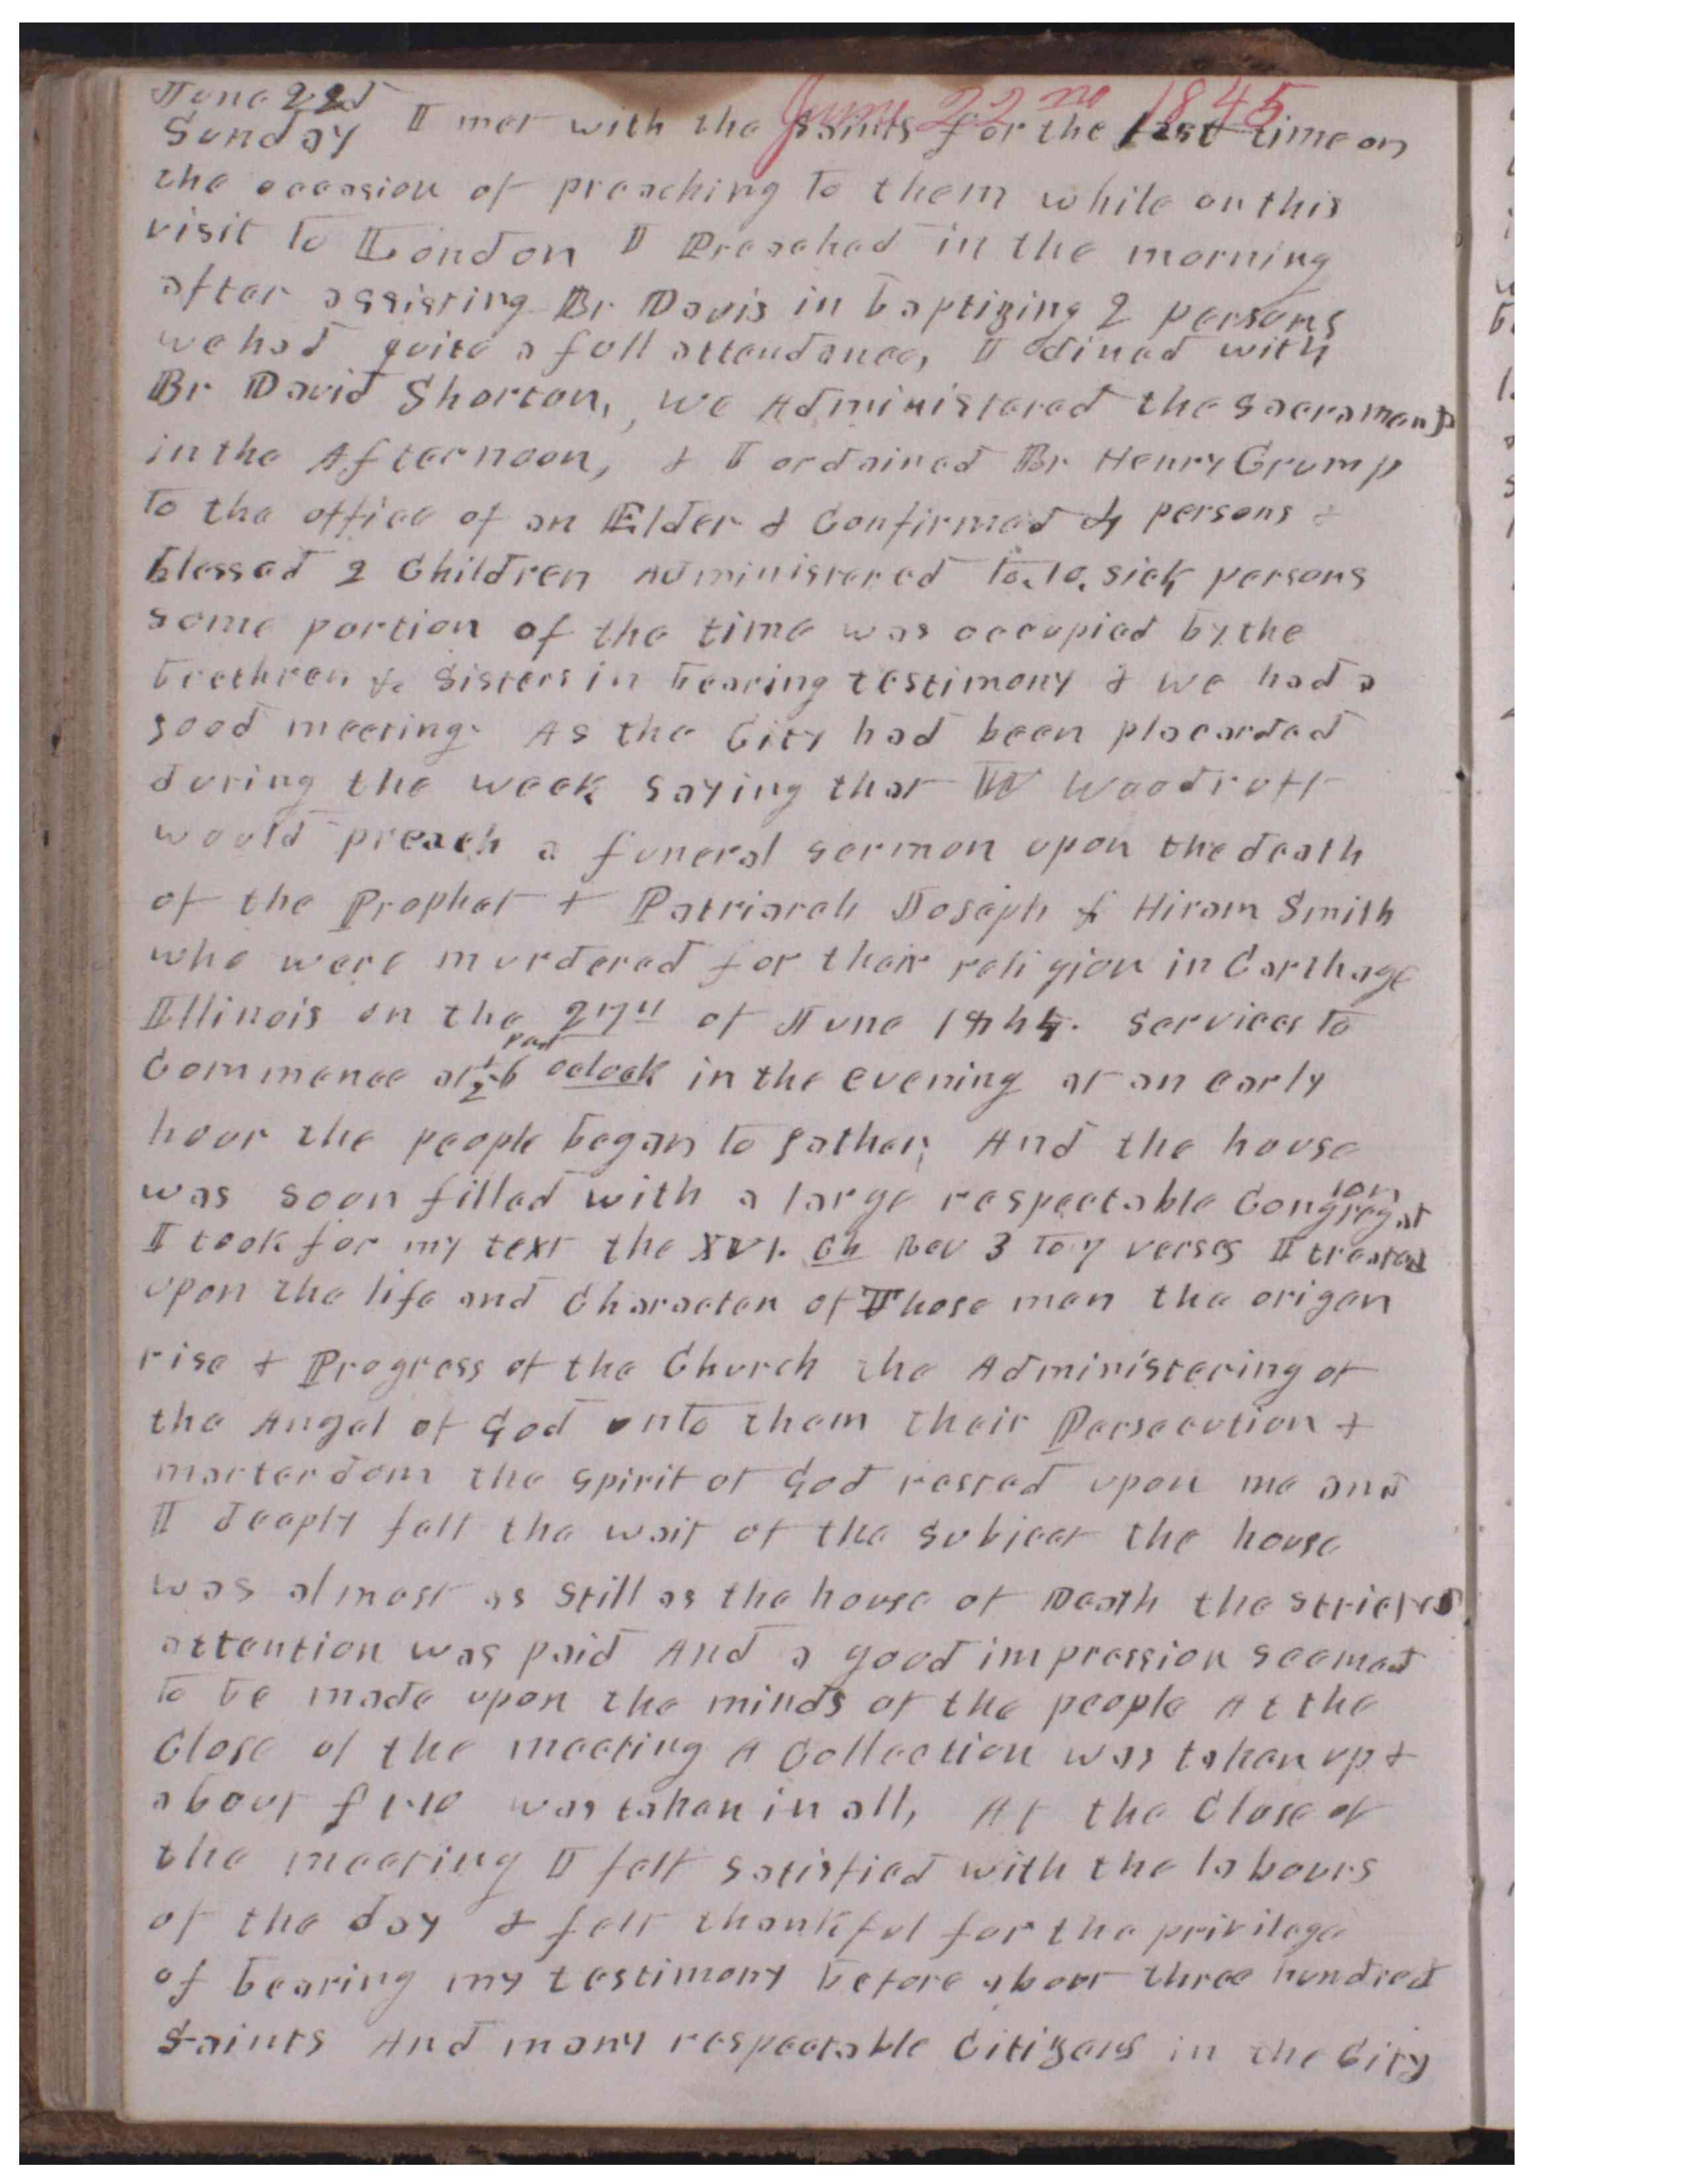 June 22nd 1845
June 22d
Sunday I met with the saints for the last time on
the occasion of preaching to them while on this
visit to London I Preached in the morning
after assisting Br Davis in baptizing 2 persons
we had quite a full attendance, I dined with
Br David Shorton, we Administered the Sacrament
in the Afternoon, & I ordained Br Henry Crump
to the office of an Elder & Confirmed 4 persons &
blessed 2 Children Administered to 10 sick persons
some portion of the time was occupied by the
brethren & Sisters in bearing testimony & we had a
good meeting. As the City had been placarded
during the week saying that W Woodruff
would preach a funeral sermon upon the death
of the Prophet + Patriarch Joseph & Hiram Smith
who were murdered for their religion in Carthage
Illinois on the 27th of June 1844. Services to
Commence at ½ past 6 oclock in the evening at an early
hour the people began to gather, And the house
was soon filled with a large respectable Congregation
I took for my text the XVI. ch Rev 3 to 7 verses I treated
upon the life and Character of Those men the origen
rise + Progress of the Church the Administering of
the Angel of God unto them their Persecution +
marterdom the spirit of God rested upon me and
I deeply felt the wait of the subject the house
was almost as still as the house of Death the strictes
attention was paid And a good impression seemed
to be made upon the minds of the people At the
Close of the meeting A Collection was taken up &
about £1-10 was taken in all, At the Close of
the meeting I felt satisfied with the labours
of the day & felt thankful for the privilege
of bearing my testimony before about three hundred
Saints And many respectable Citizens in the City